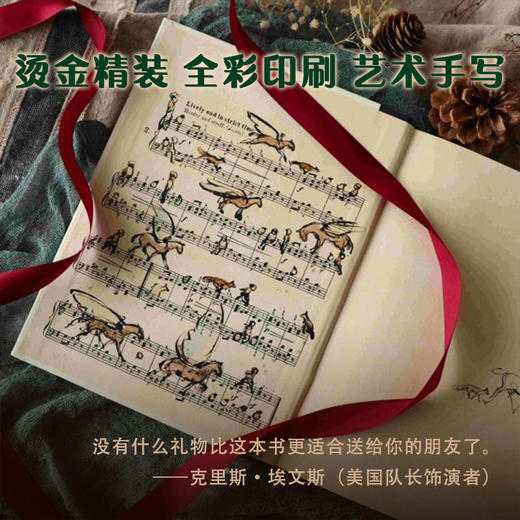 烫金精装 全彩印刷 艺术手写
Lively and in strict time
2.
没有什么礼物比这本书更适合送给你的朋友了。
——克里斯·埃文斯（美国队长饰演者）